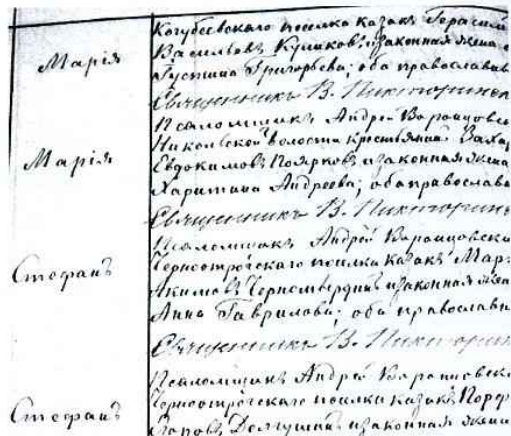 Марія
Кочубеевскаго поселка казакъ Герасимъ
Васильевъ Куликовъ и законная жена
Густина Григорьева; оба православн
Священникъ В. Никторинъ
Марія
Псаломщикъ Андрей Воронцовск
Никольской волости крестьянинъ Заха
Евдокимовъ Поярковъ и законная жена
Харитина Андреева; оба православн
Священникъ В. Никторинъ
Стефанъ
Псаломщикъ Андрей Воронцовск
Черноотрогскаго поселка казакъ Мар
Акимовъ Черномырдинъ и законная жена
Анна Гаврилова; оба православн
Священникъ В. Никторин
Стефанъ
Псаломщикъ Андрей Воронцовск
Черноотрогскаго поселка казакъ Порф
и законная жена